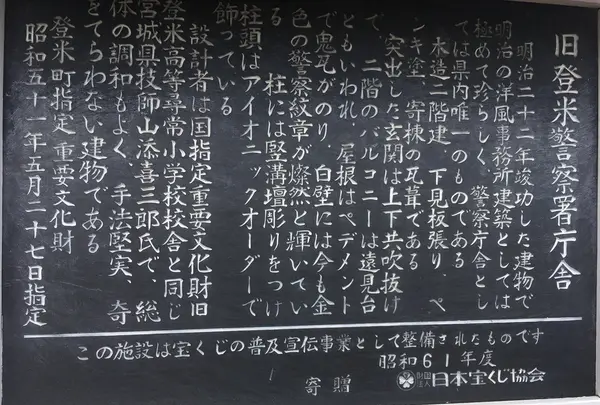 旧登米警察署庁舎
明治二十二年竣功した建物で
明治の洋風事務所建築としては
極めて珍らしく、警察庁舎とし
ては県内唯一のものである
木造二階建、下見板張り、ペ
ンキ塗、寄棟の瓦葺である
突出した玄関は上下共吹抜け
で、二階のバルコニーは遠見台
ともいわれ、屋根はペデメント
で鬼瓦がのり、白壁には今も金
色の警察紋章が燦然と輝いてい
る 柱には竪溝壇彫りをつけ
柱頭はアイオニックオーダーで
飾っている
設計者は国指定重要文化財旧
登米高等尋常小学校校舎と同じ
宮城県技師山添喜三郎氏で、総
体の調和もよく、手法堅実、奇
をてらわない建物である
登米町指定 重要文化財
昭和五十一年五月二十七日指定
この施設は宝くじの普及宣伝事業として整備されたものです
昭和61年度
寄贈 財団法人 日本宝くじ協会